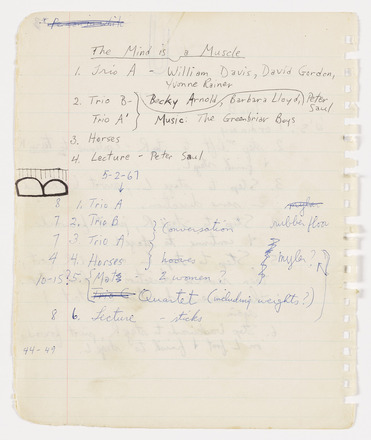 The Mind is a Muscle
1. Trio A - William Davis, David Gordon,
Yvonne Rainer
2. Trio B- Becky Arnold, Barbara Lloyd, Peter Saul
Trio A' Music: The Greenbriar Boys
3. Horses
4. Lecture - Peter Saul
5-2-67
8 1. Trio A
7 2. Trio B Conversation rubber floor
7 3. Trio A'
4 4. Horses hooves mylar?
10-15? 5. Mats - 2 women?
Trio C Quartet (including weights?)
8 6. Lecture - sticks
44-49